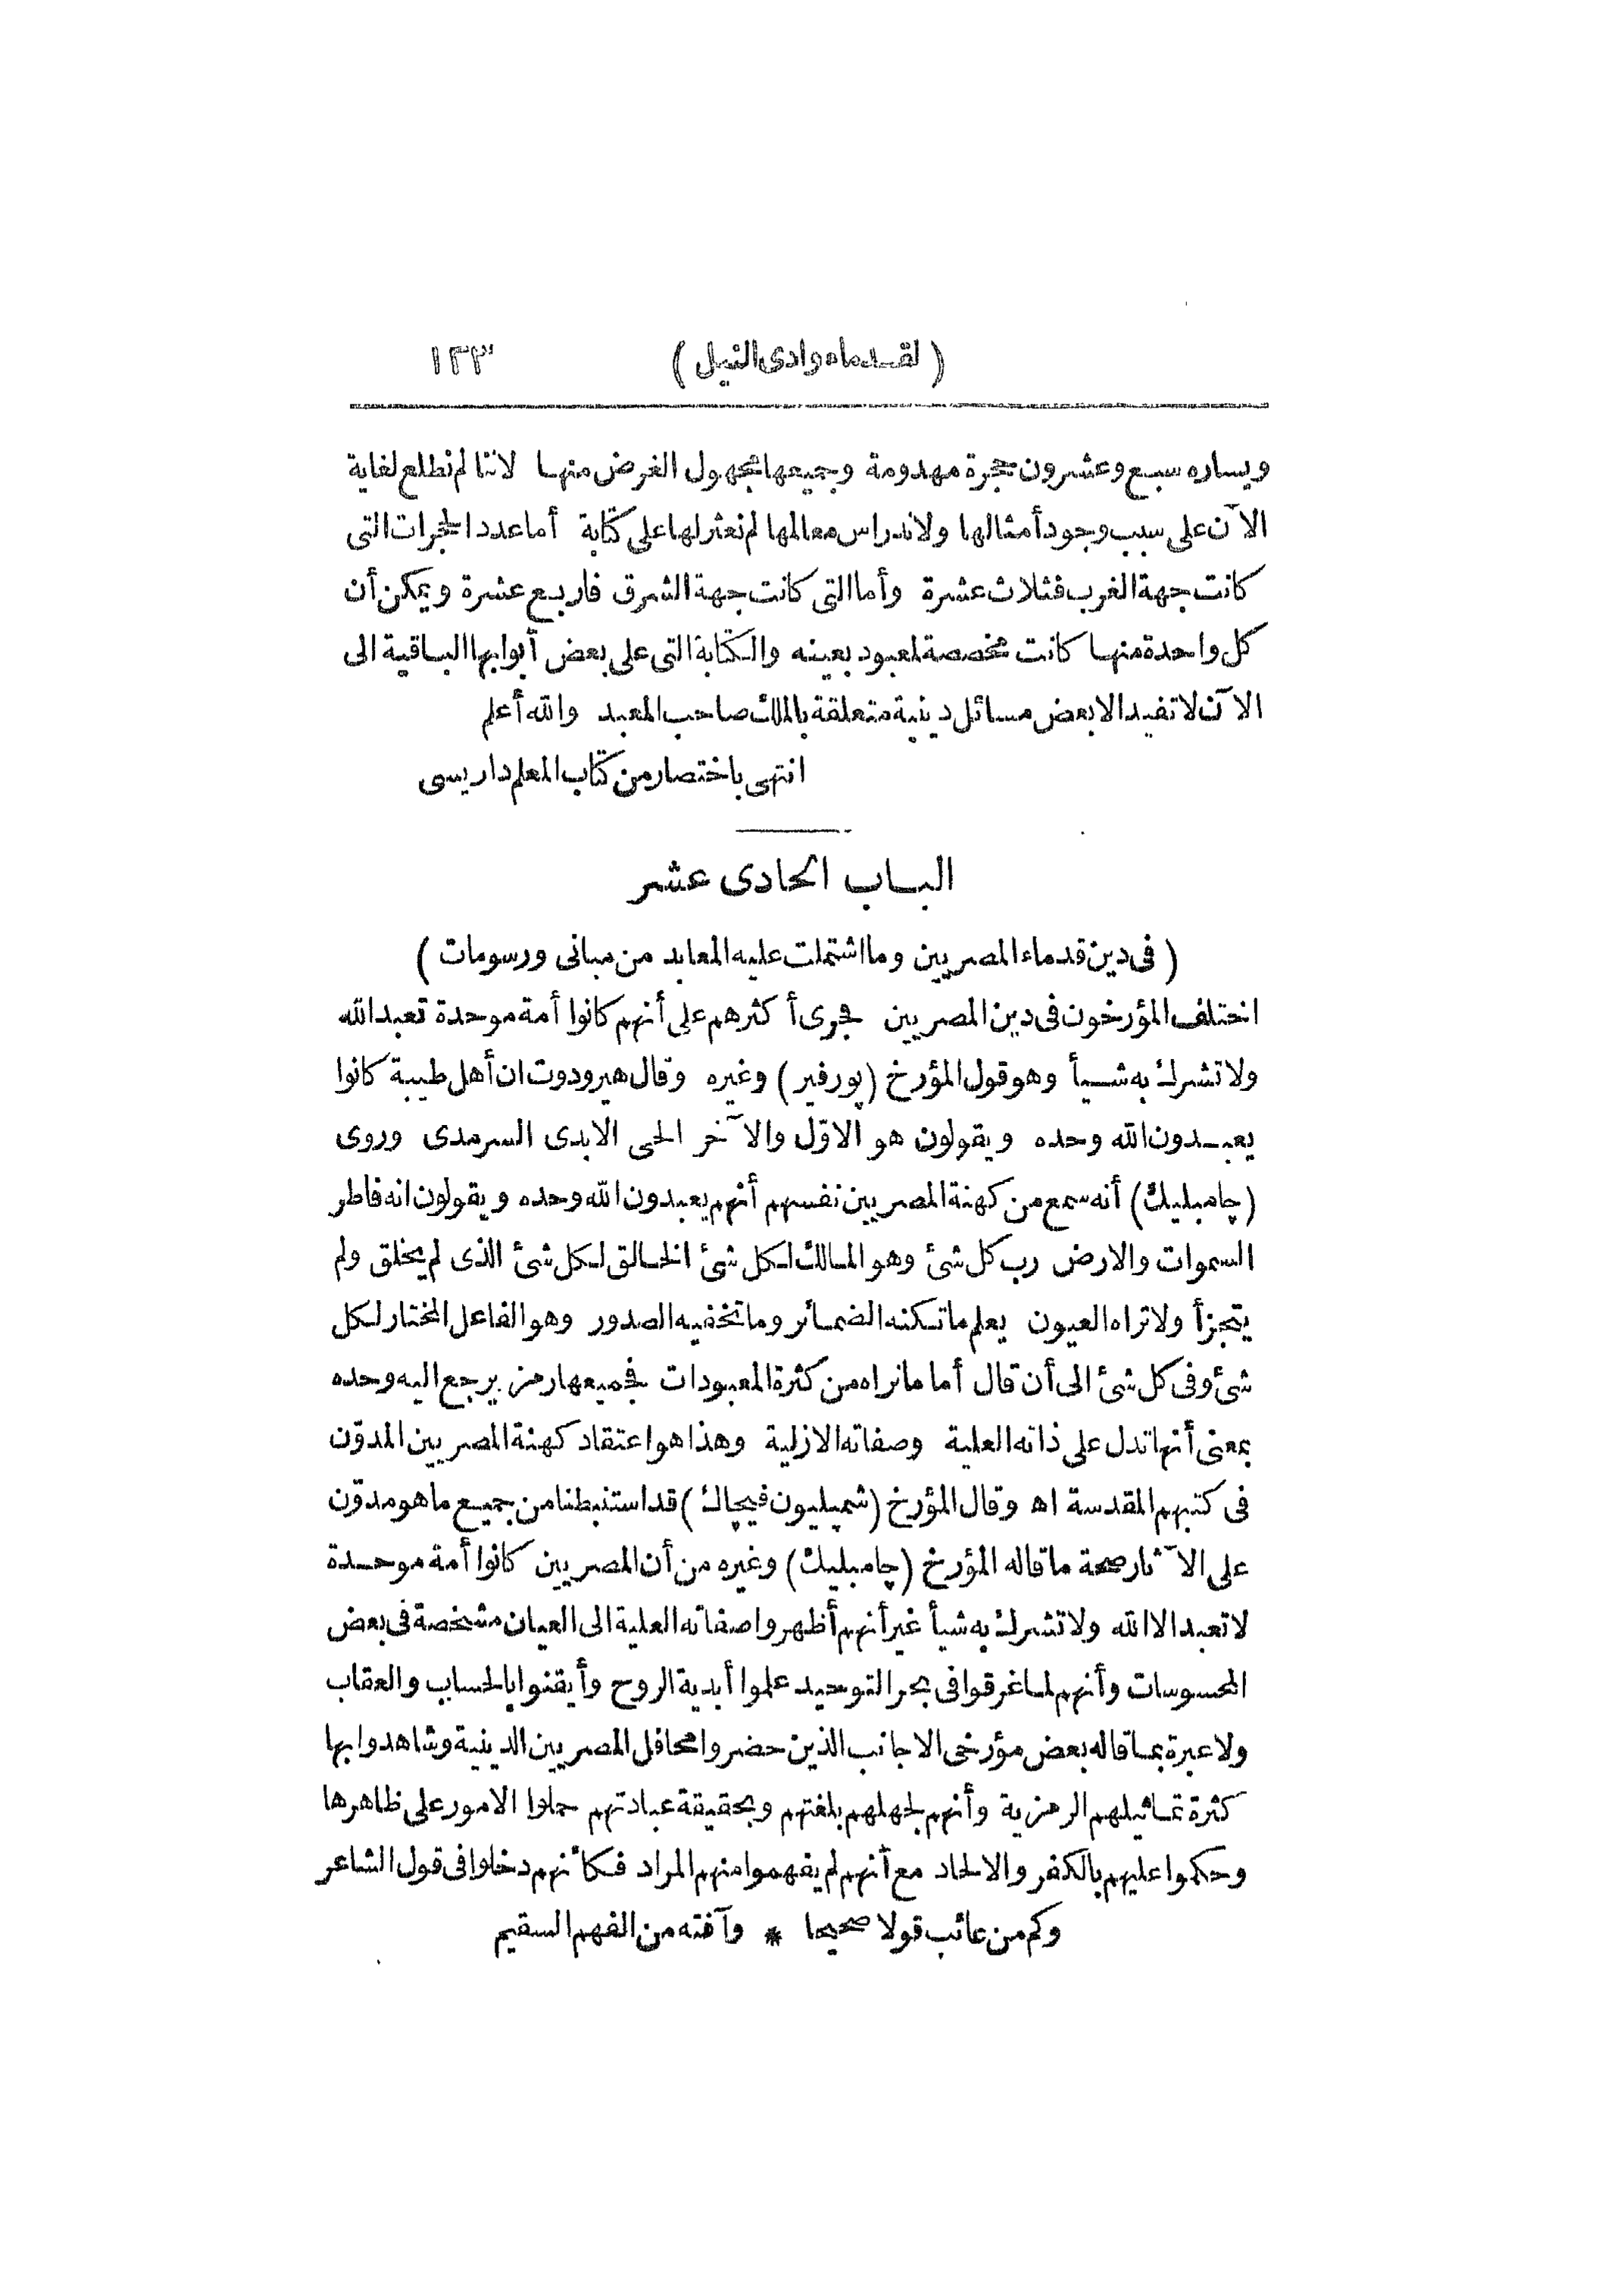 (لقدماء وادى النيل) ١٣٣
ويساره سبع وعشرون حجرة مهدومة وجميعها مجهول الغرض منها لاننا لم نطلع لغاية
الآن على سبب وجود أمثالها ولاندراس معالمها لم نعثر لها على كتابة أما عدد الحجرات التى
كانت جهة الغرب فثلاث عشرة وأما التى كانت جهة الشرق فاربع عشرة ويمكن أن
كل واحدة منها كانت مخصصة لمعبود بعينه والكتابة التى على بعض أبوابها الباقية الى
الآن لا تفيد الا بعض مسائل دينية متعلقة بالملك صاحب المعبد والله أعلم
انتهى باختصار من كتاب المعلم داريسى
الباب الحادى عشر
(فى دين قدماء المصريين وما اشتملت عليه المعابد من مبانى ورسومات)
اختلف المؤرخون فى دين المصريين فجرى أكثرهم على أنهم كانوا أمة موحدة تعبد الله
ولا تشرك به شيأ وهو قول المؤرخ (پورفير) وغيره وقال هيرودوت ان أهل طيبة كانوا
يعبدون الله وحده ويقولون هو الاوّل والآخر الحى الابدى السرمدى وروى
(چامبليك) أنه سمع من كهنة المصريين نفسهم أنهم يعبدون الله وحده ويقولون انه فاطر
السموات والارض رب كل شئ وهو المالك لكل شئ الخالق لكل شئ الذى لم يخلق ولم
يتجزأ ولا تراه العيون يعلم ما تكنه الضمائر وما تخفيه الصدور وهو الفاعل المختار لكل
شئ وفى كل شئ الى أن قال أما ما نراه من كثرة المعبودات فجميعها رمز يرجع اليه وحده
بمعنى أنها تدل على ذاته العلية وصفاته الازلية وهذا هو اعتقاد كهنة المصريين المدوّن
فى كتبهم المقدسة اه وقال المؤرخ (شمپليون فيچاك) قد استنبطنا من جميع ما هو مدوّن
على الآثار صحة ما قاله المؤرخ (چامبليك) وغيره من أن المصريين كانوا أمة موحدة
لا تعبد الا الله ولا تشرك به شيأ غير أنهم أظهروا صفاته العلية الى العيان مشخصة فى بعض
المحسوسات وأنهم لما غرقوا فى بحر التوحيد علموا أبدية الروح وأيقنوا بالحساب والعقاب
ولا عبرة بما قاله بعض مؤرخى الاجانب الذين حضروا محافل المصريين الدينية وشاهدوا بها
كثرة تماثيلهم الرمزية وأنهم لجهلهم بلغتهم وبحقيقة عبادتهم حملوا الامور على ظاهرها
وحكموا عليهم بالكفر والالحاد مع أنهم لم يفهموا منهم المراد فكأنهم دخلوا فى قول الشاعر
وكم من عائب قولا صحيحا * وآفته من الفهم السقيم